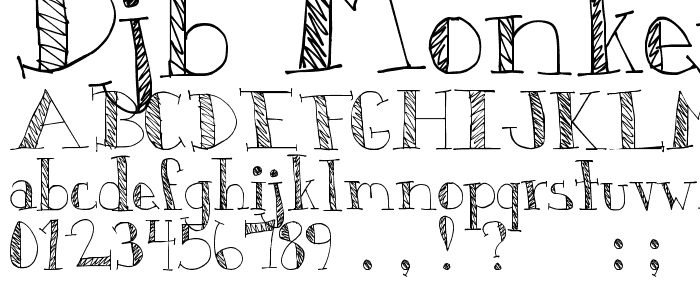 Djb Monke
ABCDEFGHIJKLM
abcdefghijklmnopqrstuvw
0123456789 . , ! ? : ;